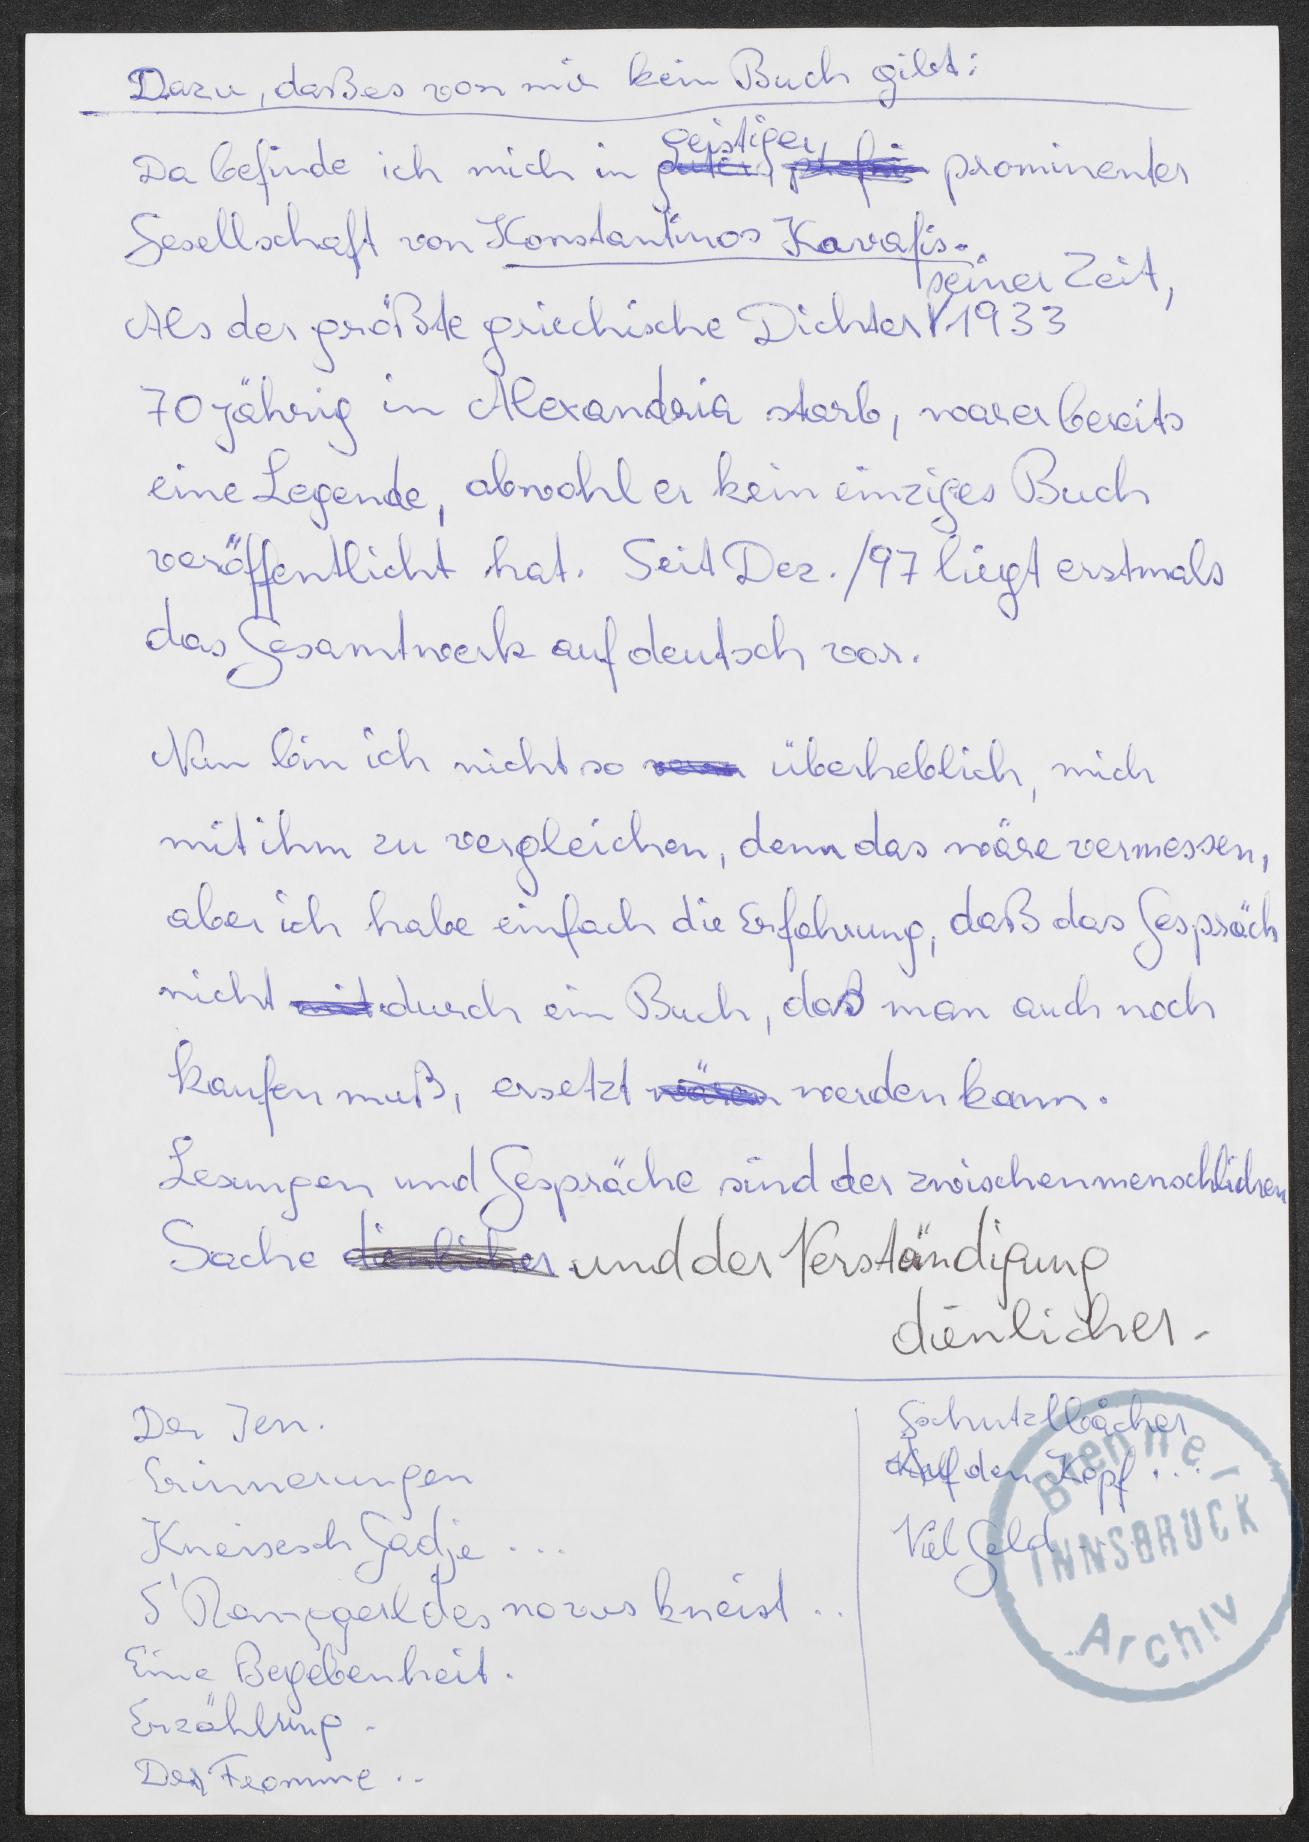 Dazu, daß es von mir kein Buch gibt:
Da befinde ich mich in geistiger, prominenter
Gesellschaft von Konstantinos Kavafis.
Als der größte griechische Dichter seiner Zeit, 1933
70jährig in Alexandria starb, war er bereits
eine Legende, obwohl er kein einziges Buch
veröffentlicht hat. Seit Dez./97 liegt erstmals
das Gesamtwerk auf deutsch vor.
Nun bin ich nicht so überheblich, mich
mit ihm zu vergleichen, denn das wäre vermessen,
aber ich habe einfach die Erfahrung, daß das Gespräch
nicht durch ein Buch, daß man auch noch
kaufen muß, ersetzt werden kann.
Lesungen und Gespräche sind der zwischenmenschlichen
Sache und der Verständigung
dienlicher.
Der Jen.
Erinnerungen
Kneisesch Gadje ...
S' Ramggerl des nobus kneist ..
Eine Begebenheit.
Erzählung.
Der Fromme ..
Gschutzlbacher
Auf den Kopf ...
Viel Geld ...
Brenner-
INNSBRUCK
Archiv